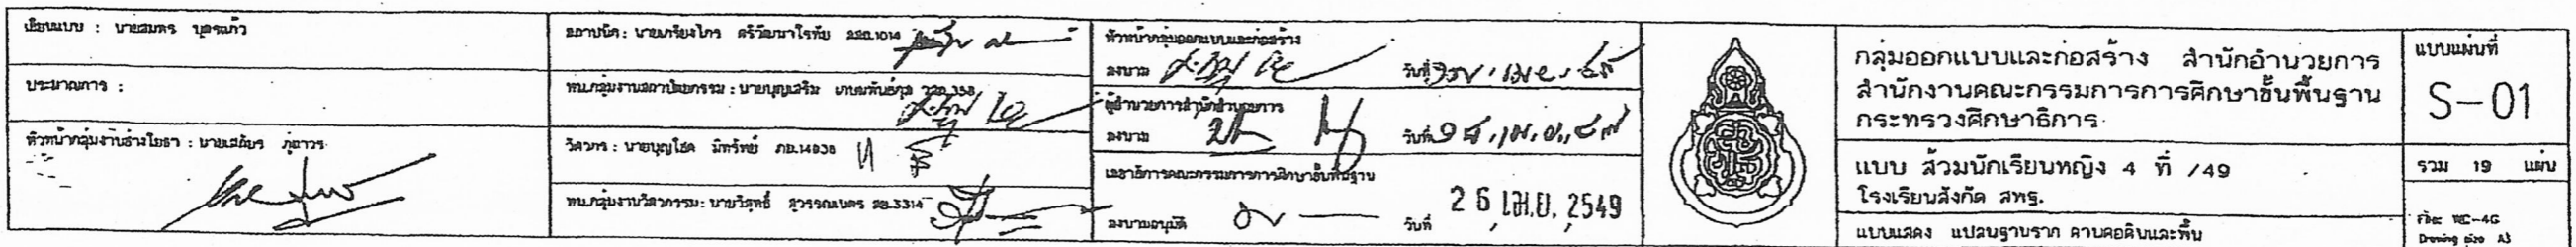 เขียนแบบ : นายสมพร บุตรแก้ว
ประมาณการ :
หัวหน้ากลุ่มงานช่างโยธา : นายเสถียร ภู่ถาวร
สถาปนิค : นายเกรียงไกร ศรีวัฒนาโรทัย สสถ.1014
หน.กลุ่มงานสถาปัตยกรรม : นายบุญเสริม
วิศวกร : นายบุญโชค มีทรัพย์ ภย.14938
หน.กลุ่มงานวิศวกรรม : นายวิสุทธิ์ สุวรรณเนตร สย.3314
หัวหน้ากลุ่มออกแบบและก่อสร้าง
ลงนาม วันที่
ผู้อำนวยการสำนักอำนวยการ
ลงนาม วันที่
เลขาธิการคณะกรรมการการศึกษาขั้นพื้นฐาน
ลงนามอนุมัติ วันที่ 26 เม.ย. 2549
กลุ่มออกแบบและก่อสร้าง สำนักอำนวยการ
สำนักงานคณะกรรมการการศึกษาขั้นพื้นฐาน
กระทรวงศึกษาธิการ
แบบ ส้วมนักเรียนหญิง 4 ที่ /49
โรงเรียนสังกัด สพฐ.
แบบแสดง แปลนฐานราก คานคอดินและพื้น
แบบแผ่นที่
S-01
รวม 19 แผ่น
File: WC-4G
Drawing size A3